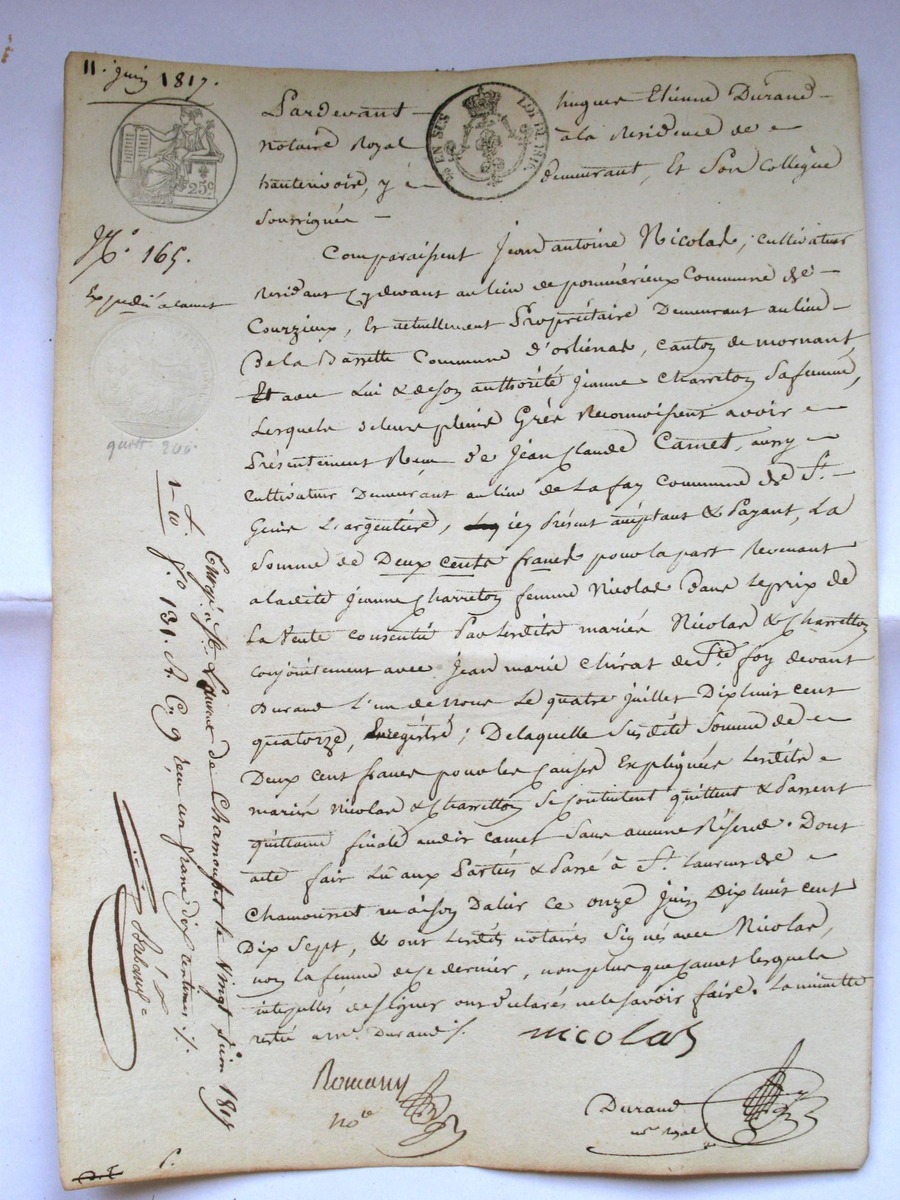 11. juin 1817.
Pardevant hugues Etienne Durand
notaire Royal à la Residence de
hauterivoire, y demeurant, Et Son Collègue
Soussignés
25c
EN SUS
LOI DE 1816.
No. 165.
Expedié a camet
Comparaissent Jean antoine Nicolas, cultivateur
Residant cydevant au lieu de pomérieux Commune de
Courzieux, Et actuellement Propriétaire Demeurant au lieu
De la Bassette Commune d'orliénas, canton de mornant,
Et avec Lui & de son authorité Jeanne Charreton Sa femme,
Lesquels de leurs pleins Grés Reconnoissent avoir
Présentement Reçu de Jean Claude Camet, aussy
Cultivateur Demeurant au lieu de La fay Commune de St.
Genis L'argentière, icy Présent acceptant & Payant, La
Somme de Deux cents francs pour la part Revenant
a ladite Jeanne Charreton femme Nicolas dans Le prix de
La Vente consentie Par lesdits mariés Nicolas & Charretton
conjointement avec Jean marie Chirat de Ste foy devant
Durand L'un de nous Le quatre juillet Dix huit cent
quatorze, Enregistré; De laquelle Susdite Somme de
Deux cent francs pour les Causes Expliquées lesdits
mariés Nicolas & Charretton Se contentent quittent & Passent
quittance finale audit camet Sans aucune Réserve. Dont
acte fait Lû aux Parties & Passé à St. Laurent de
Chamousset maison Dalin Ce onze juin Dix huit cent
Dix Sept, & ont Lesdits notaires Signés avec Nicolas,
non la femme de ce dernier, non plus que Camet lesquels
interpellés de signer ont déclarés ne le Savoir faire. La minutte
restée a me. Durand
Nicolas
Romany
No.e
Durand
nre. royal
Enregé. à St. Laurent de Chamousset le vingt juin 1817
fo. 131. Ro. Cn. 9, reçu un franc dix centimes